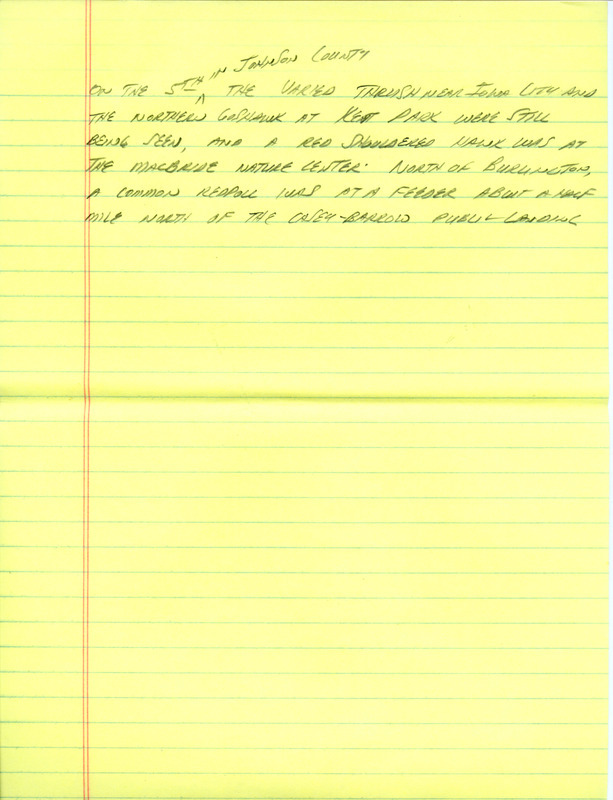 IN JOHNSON COUNTY
ON THE 5TH ^ THE VARIED THRUSH NEAR IOWA CITY AND
THE NORTHERN GOSHAWK AT KENT PARK WERE STILL
BEING SEEN, AND A RED SHOULDERED HAWK WAS AT
THE MACBRIDE NATURE CENTER. NORTH OF BURLINGTON,
A COMMON REDPOLL WAS AT A FEEDER ABOUT A HALF
MILE NORTH OF THE CASEY-BARROW PUBLIC LANDING